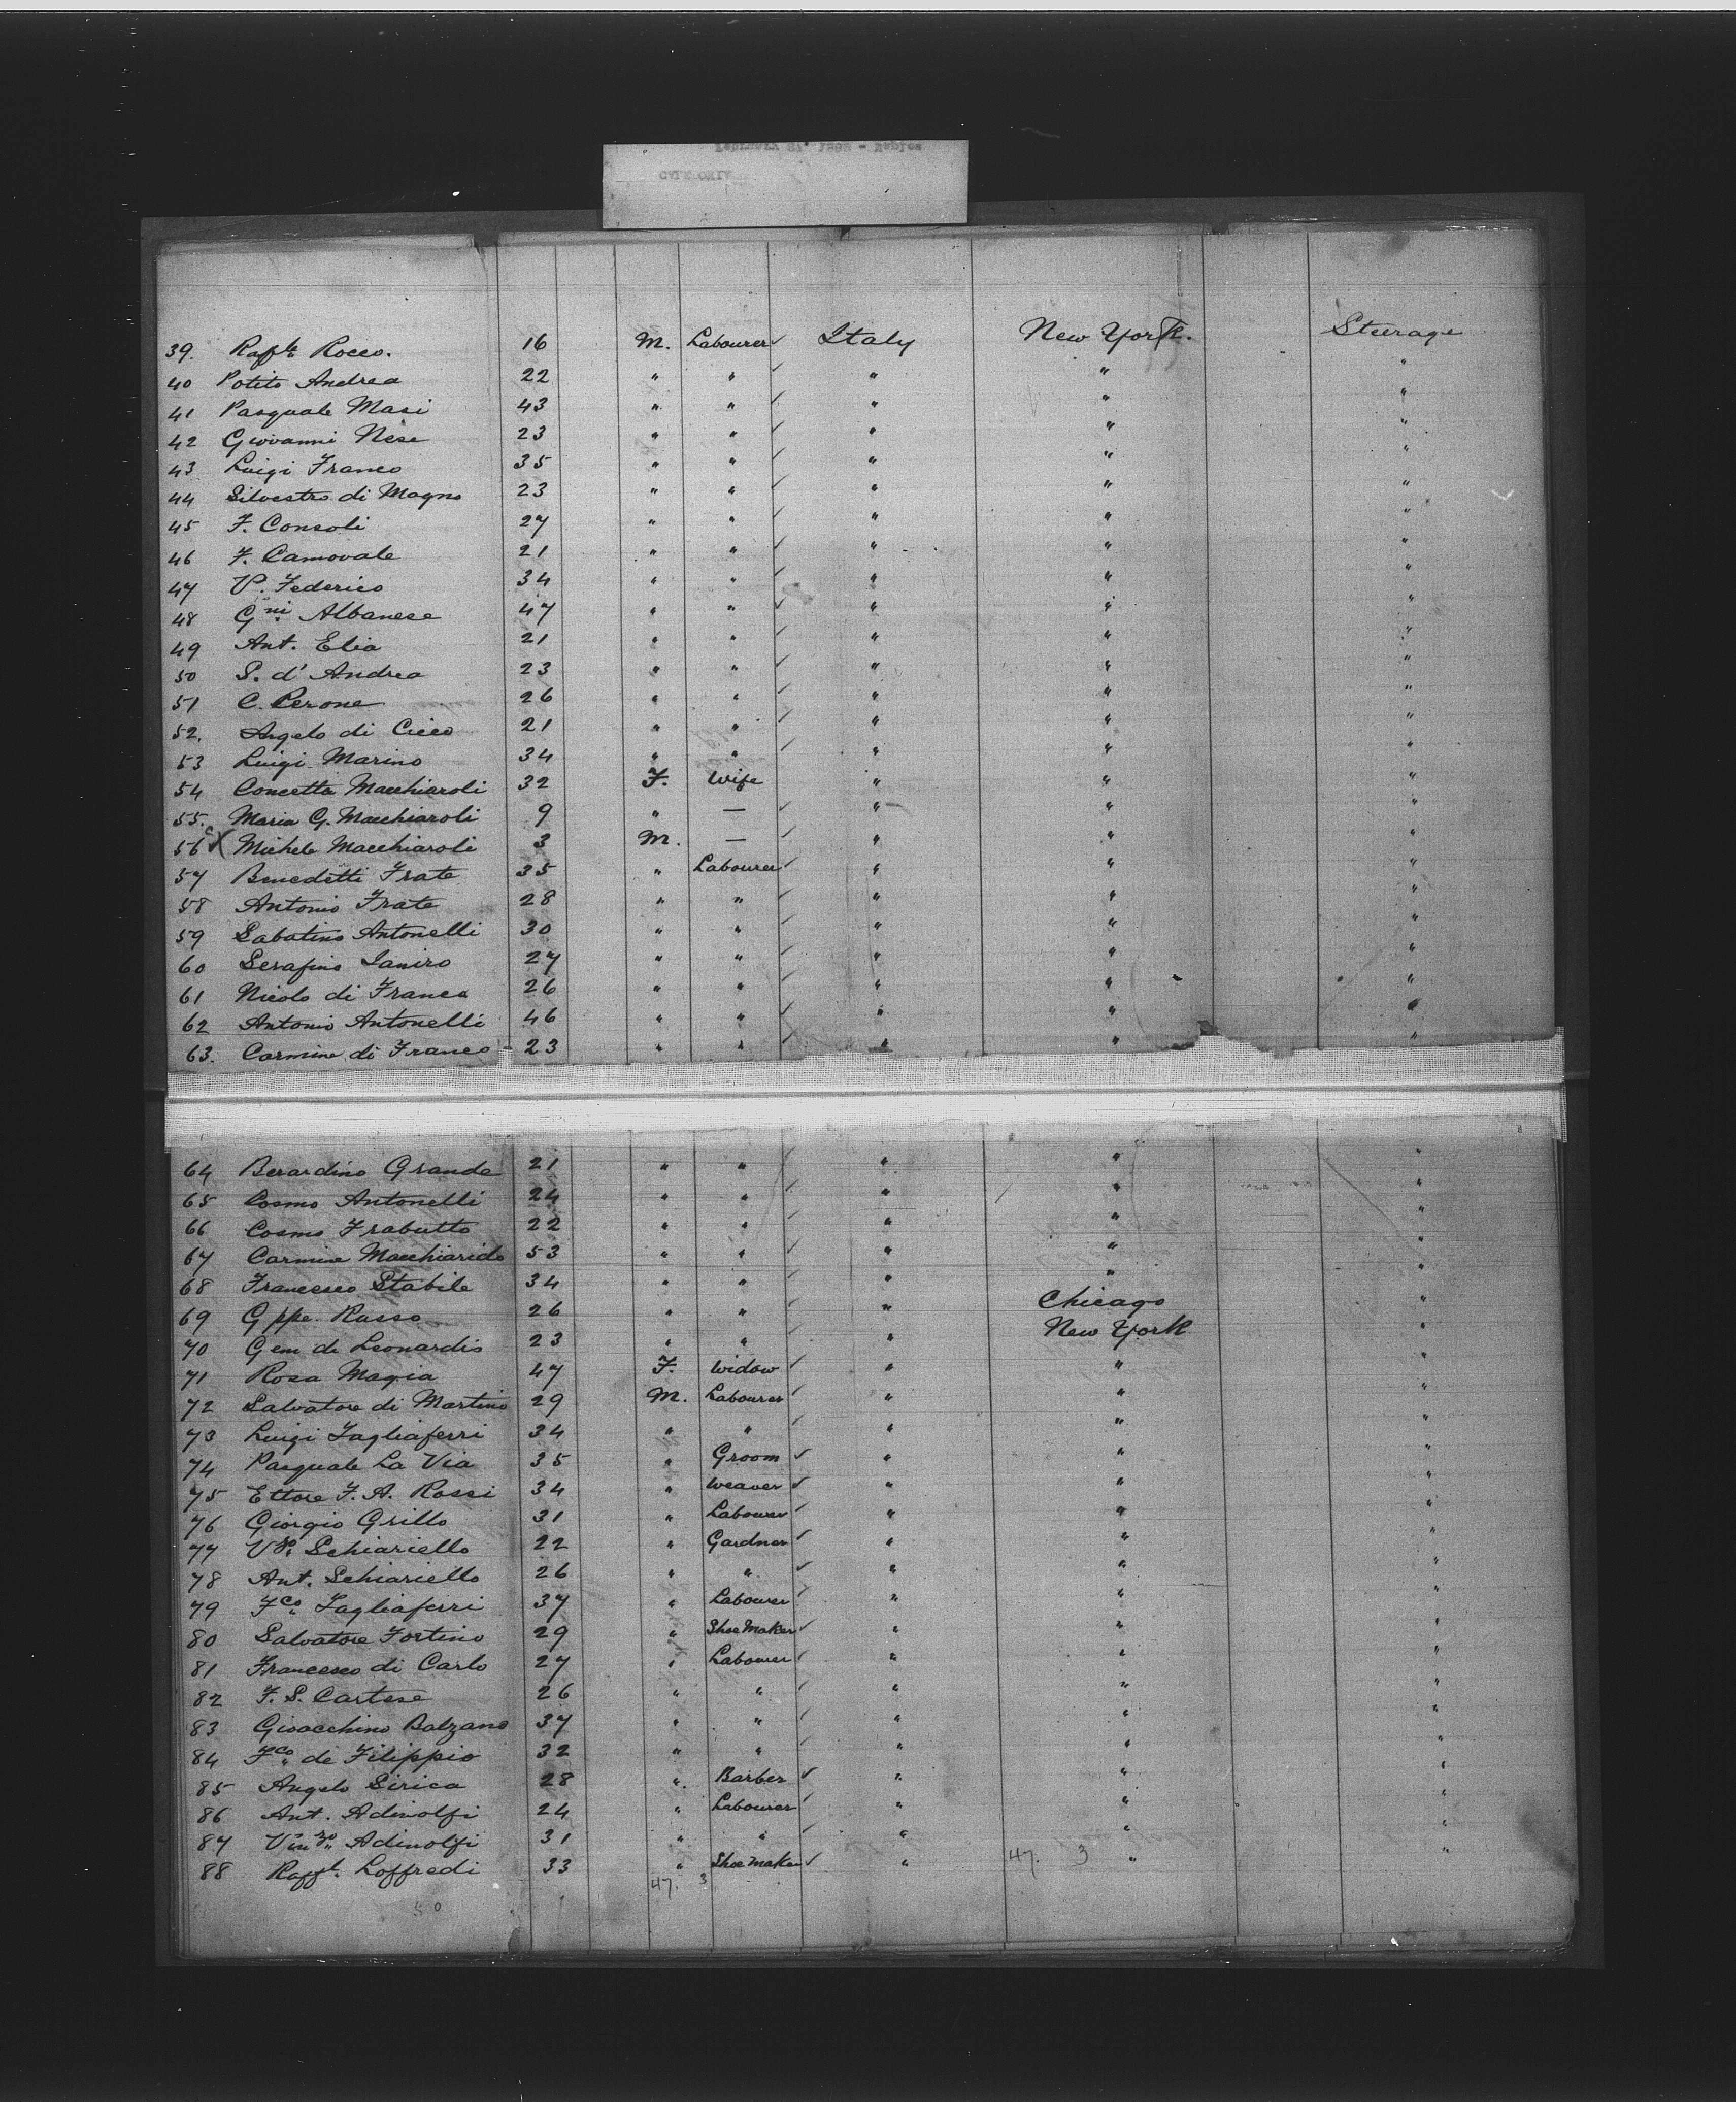 39. Rafle Rocco. 16 M. Labourer ✓ Italy New York. Steerage
40 Potito Andrea 22 " " ✓ " " "
41 Pasquale Masi 43 " " ✓ " " "
42 Giovanni Nese 23 " " ✓ " " "
43 Luigi Franco 35 " " ✓ " " "
44 Silvestro di Magno 23 " " ✓ " " "
45 F. Consoli 27 " " ✓ " " "
46 F. Camovale 21 " " ✓ " " "
47 V. Federico 34 " " ✓ " " "
48 Gni Albanese 47 " " ✓ " " "
49 Ant. Elia 21 " " ✓ " " "
50 S. d' Andrea 23 " " ✓ " " "
51 C. Perone 26 " " ✓ " " "
52. Angelo di Cicco 21 " " ✓ " " "
53 Luigi Marino 34 " " ✓ " " "
54 Concetta Macchiaroli 32 F. Wife " " "
55. Maria G. Macchiaroli 9 " — ✓ " " "
56 Michele Macchiaroli 3 M. — ✓ " " "
57 Benedetti Frate 35 " Labourer ✓ " " "
58 Antonio Frate 28 " " ✓ " " "
59 Sabatino Antonelli 30 " " ✓ " " "
60 Serafino Ianiro 27 " " ✓ " " "
61 Nicolo di Franco 26 " " ✓ " " "
62 Antonio Antonelli 46 " " ✓ " " "
63. Carmine di Franco 23 " " ✓ " " "
64 Berardino Grande 21 " " ✓ " " "
65 Cosmo Antonelli 24 " " ✓ " " "
66 Cosmo Frabutto 22 " " ✓ " " "
67 Carmine Macchiarido 53 " " ✓ " " "
68 Francesco Stabile 34 " " ✓ " " "
69 Gppe. Russo 26 " " ✓ " Chicago "
70 Gem de Leonardis 23 " " ✓ " New York "
71 Rosa Magia 47 F. Widow ✓ " " "
72 Salvatore di Martino 29 M. Labourer ✓ " " "
73 Luigi Tagliaferri 34 " " ✓ " " "
74 Pasquale La Via 35 " Groom ✓ " " "
75 Ettore F. A. Rossi 34 " Weaver ✓ " " "
76 Giorgio Grillo 31 " Labourer ✓ " " "
77 Vzo Schiariello 22 " Gardner ✓ " " "
78 Ant. Schiariello 26 " " ✓ " " "
79 Fco Tagliaferri 37 " Labourer ✓ " " "
80 Salvatore Fortino 29 " Shoe Maker ✓ " " "
81 Francesco di Carlo 27 " Labourer ✓ " " "
82 F. S. Cartese 26 " " ✓ " " "
83 Gioacchino Balzano 37 " " ✓ " " "
84 Fco de Filippio 32 " " ✓ " " "
85 Angelo Sirica 28 " Barber ✓ " " "
86 Ant. Adinolfi 24 " Labourer ✓ " " "
87 Vinzo Adinolfi 31 " " ✓ " " "
88 Raffl. Loffredi 33 " Shoe Maker ✓ " 47. 3 " "
47. 3
50